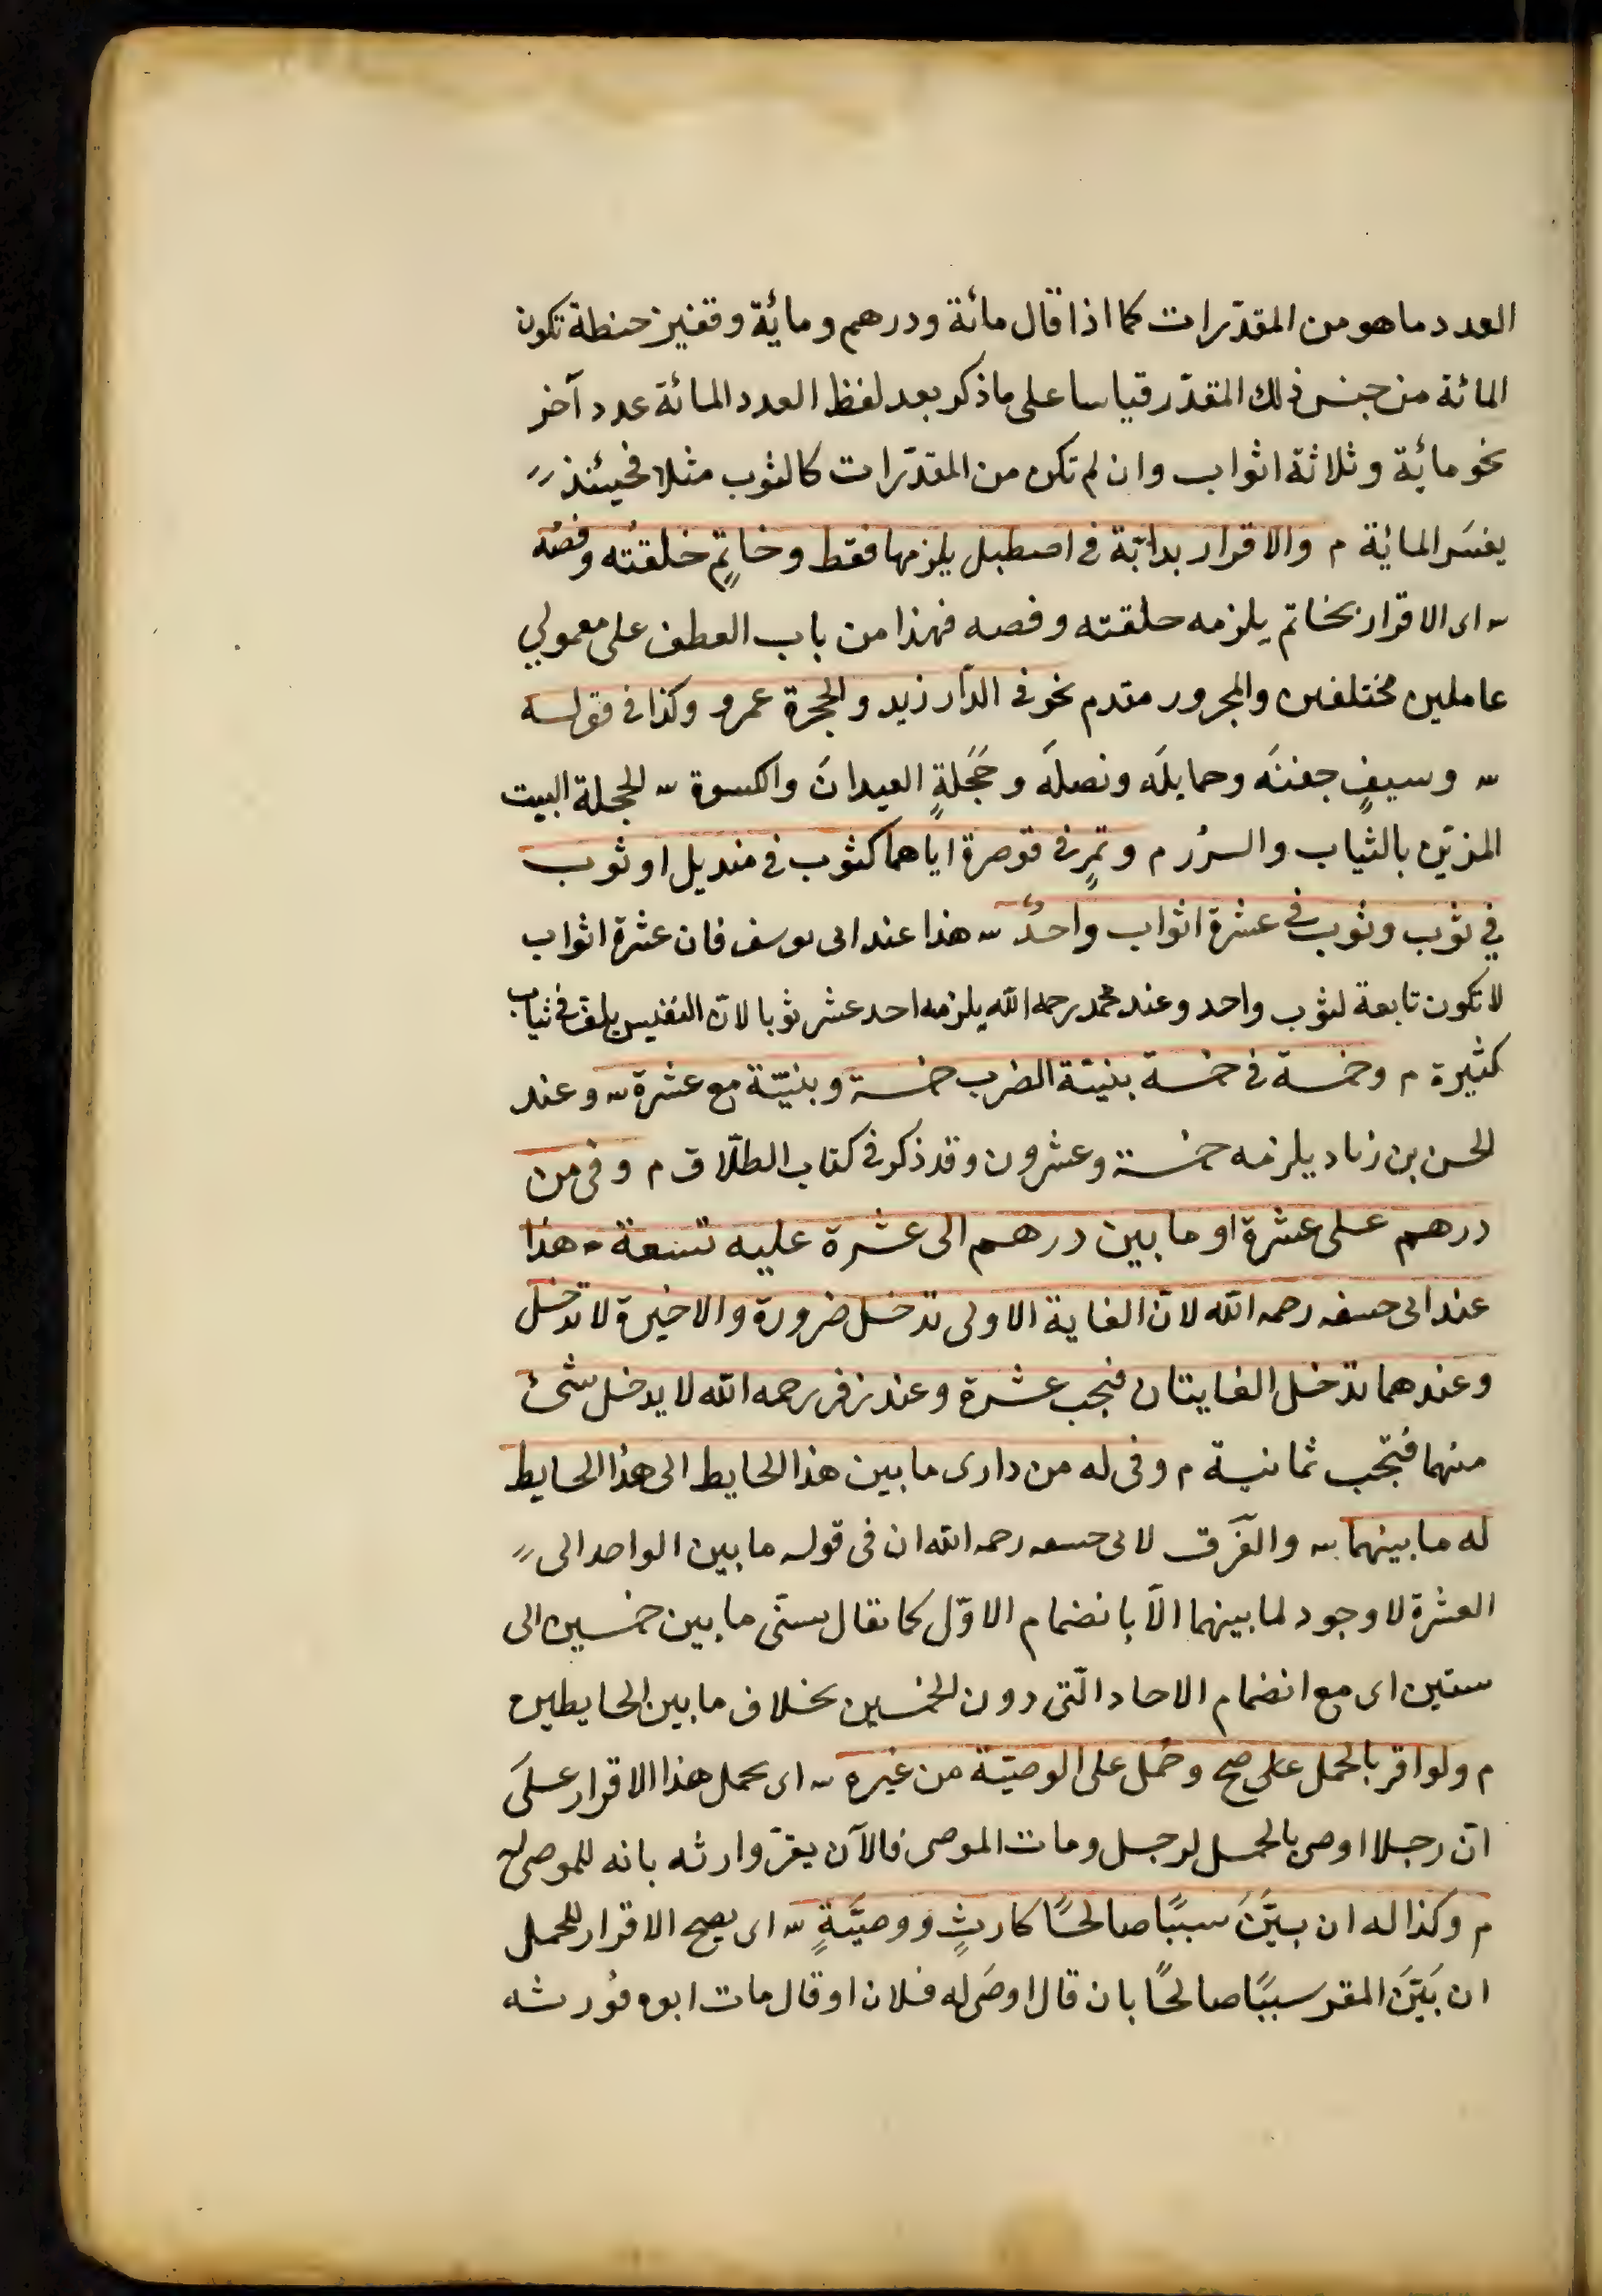 العدد ما هو من المقدّرات كما اذا قال مائة ودرهم ومائة وقفيز حنطة تكون
المائة من جنس ذلك المقدّر قياسا على ما ذكر بعد لفظ العدد المائة عدد آخر
نحو مائة وثلاثة اثواب وان لم تكن من المقدّرات كالثوب مثلا فحيئنذ
يفسَر المائة م والاقرار بدابّة فى اصطبل يلزمها فقط وخاتمٍ خلقتُه وفصُه
س اى الاقرار بخاتم يلزمه حلقته وفصه فهذا من باب العطف على معمولي
عاملين مختلفين والمجرور متدم نحو فى الدّار زيد والحجرة عمرو وكذا فى قوله
س وسيفٍ جفنَه وحمايلَه ونصلَه وحَجَلةٍ العيدانَ والكسوة س الحجلة البيت
المزيّن بالثياب والسرُر م وتمرٍ فى قوصرة اياهما كثوب فى منديل او ثوب
في ثوب وثوب فى عشرة اثواب واحدٌ س هذا عند ابى يوسف فان عشرة اثواب
لا تكون تابعة لثوب واحد وعند محمد رحمه الله يلزمه احد عشر ثوبا لانّ النفيس يلفّ فى ثياب
كثيرة م وخمسة فى خمسة بنيّة الضرب خمسة وبنيّة مع عشرة س وعند
الحسن بن زياد يلزمه خمسة وعشرون وقد ذكر فى كتاب الطلّاق م وفى من
درهم على عشرة او ما بين درهم الى عشرة عليه تسعة س هذا
عند ابى حنيفه رحمه الله لانّ الغاية الاولى تدخل ضرورة والاخيرة لا تدخل
وعندهما تدخل الغايتان فيجب عشرة وعند زفر رحمه الله لا يدخل شئ
منهما فتجب ثمانية م وفى له من دارى ما بين هذا الحايط الى هذا الحايط
له ما بينهما س والفَرق لابى حنيفه رحمه الله ان فى قوله ما بين الواحد الى
العشرة لا وجود لما بينهما الّا بانضمام الاوّل كما يقال سنّى ما بين خمسين الى
ستين اى مع انضمام الاحاد الّتى دون الخمسين بخلاف ما بين الحايطين
م ولو اقر بالحمل على صح وحُمل على الوصيّة من غيره س اى يحمل هذا الاقرار علىَ
انّ رجلا اوصى بالحمل لرجل ومات الموصى فالآن يقرّ وارثه بانه للموصى له
م وكذا له ان بيَّنَ سببًا صالحًا كارثٍ ووصيَّةٍ س اى يصح الاقرار للحمل
ان بَيَّنَ المقر سببًا صالحًا بان قال اوصَى له فلان او قال مات ابوه فوُرثه